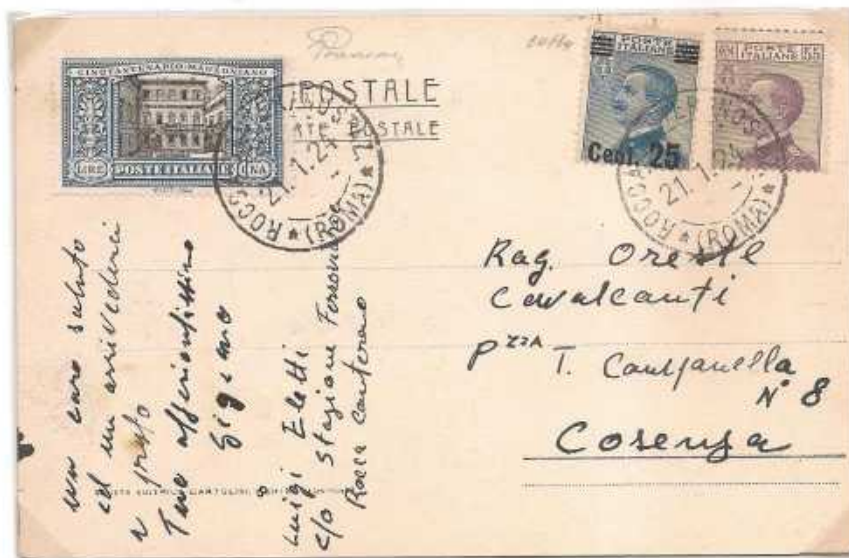 CINQVANTENARIO·MANZONIANO
LIRE
POSTE ITALIANE
UNA
POSTALE
POSTALE
POSTE
ITALIANE
Cent. 25
POSTE
ITALIANE
21.1.24
★(ROMA)★
21.1.24
★(ROMA)★
un caro saluto
ed un arrivederci
a presto
Tuo affezionatissimo
Gigino
Luigi Eletti
c/o Stazione
Rocca Canterano
Rag. Oreste
Cavalcanti
Pzza T. Campanella
N° 8
Cosenza